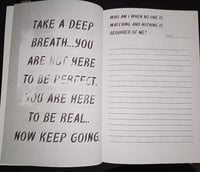 TAKE A DEEP
BREATH...YOU
ARE NOT HERE
TO BE PERFECT.
YOU ARE HERE
TO BE REAL..
NOW KEEP GOING.
WHO AM I WHEN NO ONE IS
WATCHING AND NOTHING IS
REQUIRED OF ME?